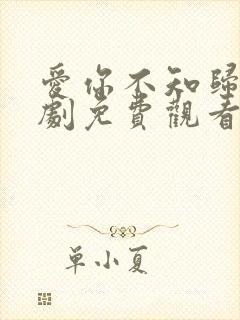 愛你不知歸
劇免費觀看
單小夏